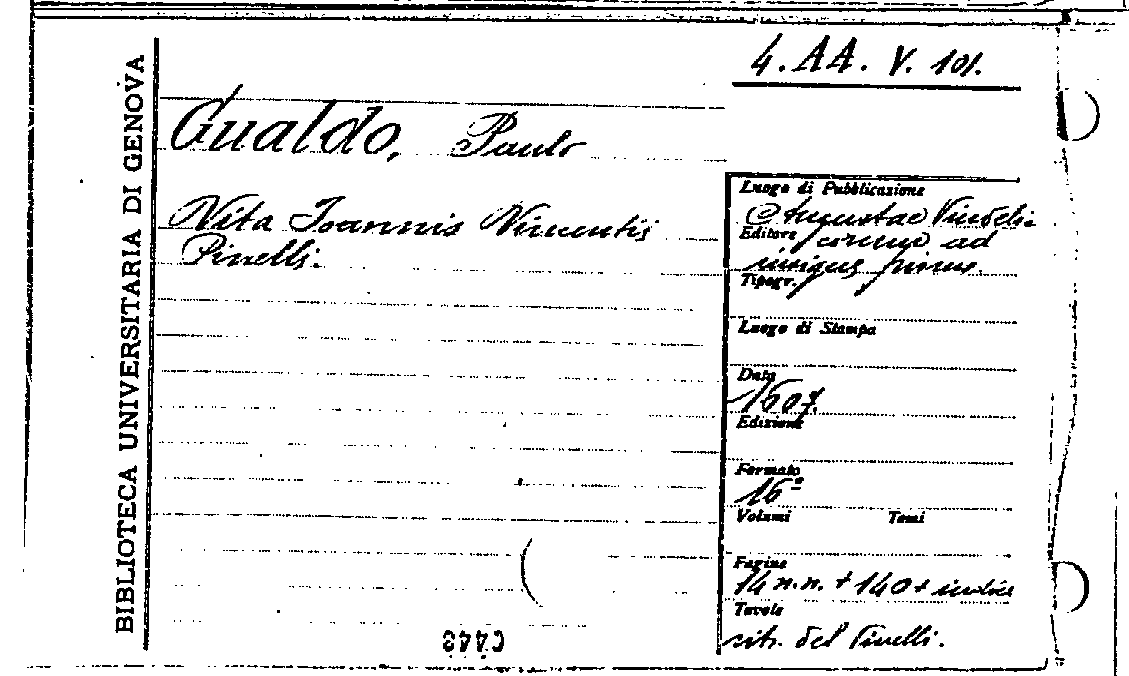 BIBLIOTECA UNIVERSITARIA DI GENOVA
4. AA. V. 101.
Gualdo, Paulo
Vita Ioannis Vincentii
Pinelli.
Luogo di Pubblicazione
Augustae Vindeli
Editore
corum ad
insigne pinus.
Tipogr.
Luogo di Stampa
Data
1607.
Edizione
Formato
16º
Volumi Tomi
Pagine
14 n.n. + 140 + indice
Tavole
ritr. del Pinelli.